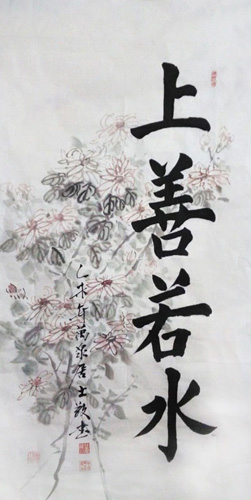 上善若水
乙未年
居士